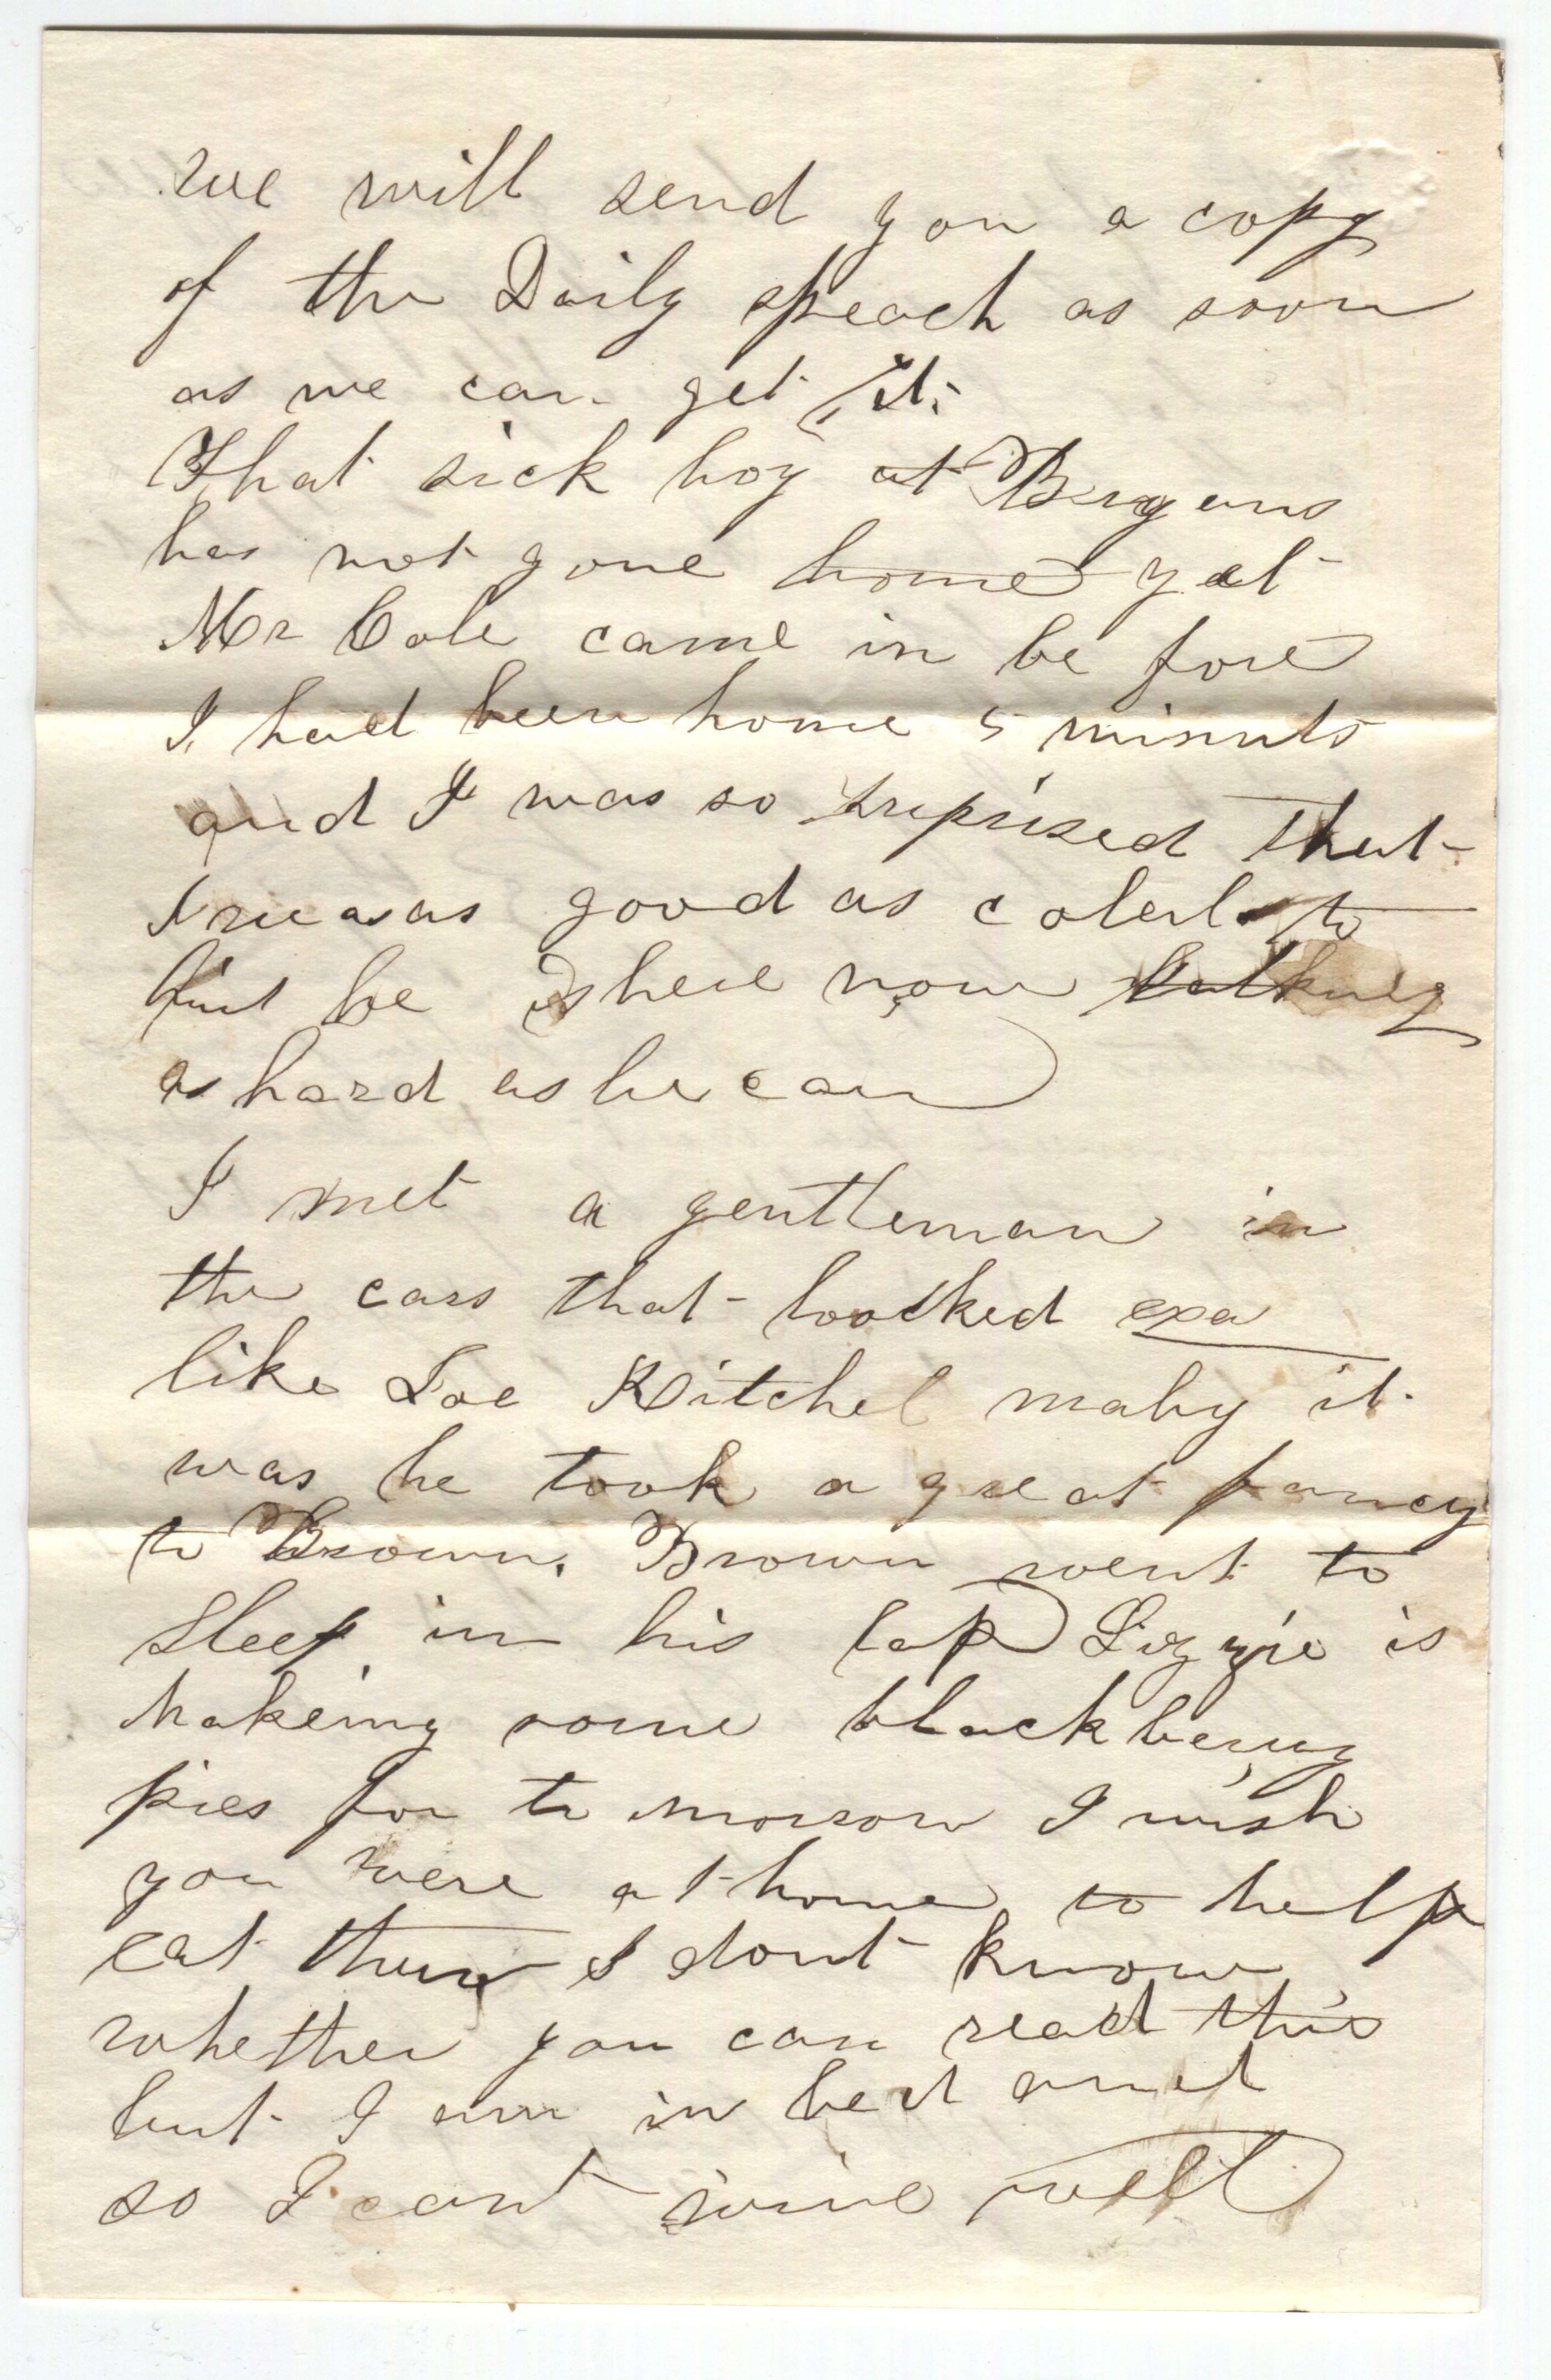 We will send you a copy
of the Daily speach as soon
as we can get it.
That sick boy at Bryans
has not gone home yet
Mr Cole came in be fore
I had been home 5 minuts
and I was so suprised that
I was as good as
but he is here now talking
as hard as he can
I met a gentleman in
the cars that loocked exa
like Joe Kitchel maby it
was he took a great fancy
to Brown. Brown went to
Sleep in his lap Lizzie is
Makeing some black berry
pies for to morrow I wish
you were at home to help
eat them I dont know
whether you can read this
but I am in bed and
so I cant write well